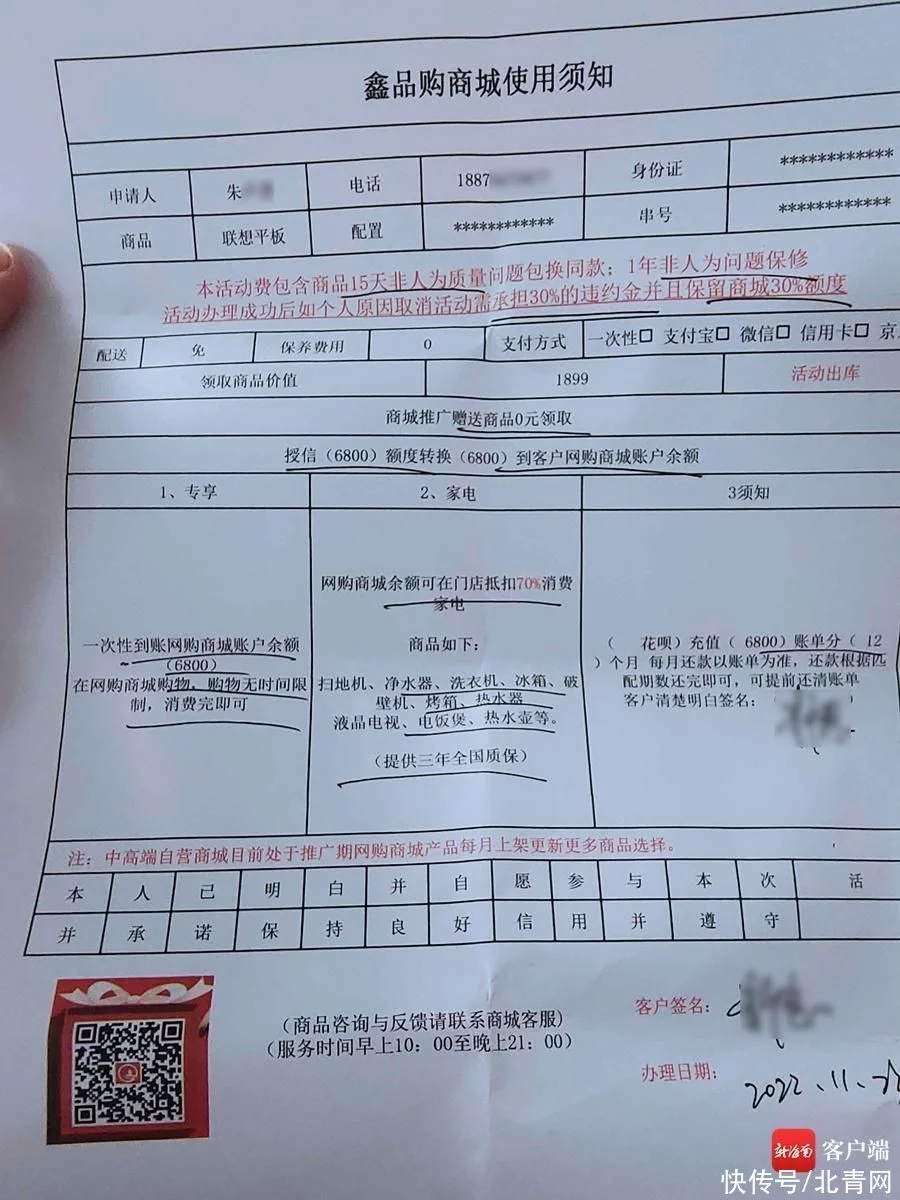 鑫品购商城使用须知
申请人 朱 电话 1887 身份证 ************
商品 联想平板 配置 ************ 串号 ************
本活动费包含商品15天非人为质量问题包换同款；1年非人为问题保修
活动办理成功后如个人原因取消活动需承担30%的违约金并且保留商城30%额度
配送 免 保养费用 0 支付方式 一次性□ 支付宝□ 微信□ 信用卡□ 京
领取商品价值 1899 活动出库
商城推广赠送商品0元领取
授信（6800）额度转换（6800）到客户网购商城账户余额
1、专享 2、家电 3须知
一次性到账网购商城账户余额
（6800）
在网购商城购物，购物无时间限
制，消费完即可
网购商城余额可在门店抵扣70%消费
家电
商品如下：
扫地机、净水器、洗衣机、冰箱、破
壁机、烤箱、热水器
液晶电视、电饭煲、热水壶等。
（提供三年全国质保）
（ 花呗）充值（ 6800）账单分（ 12
）个月 每月还款以账单为准，还款根据匹
配期数还完即可，可提前还清账单
客户清楚明白签名：（ ）
注：中高端自营商城目前处于推广期网购商城产品每月上架更新更多商品选择。
本 人 已 明 白 并 自 愿 参 与 本 次 活
并 承 诺 保 持 良 好 信 用 并 遵 守
（商品咨询与反馈请联系商城客服）
（服务时间早上10：00至晚上21：00）
客户签名：
办理日期：
2022.11.
新海南 客户端
快传号/北青网